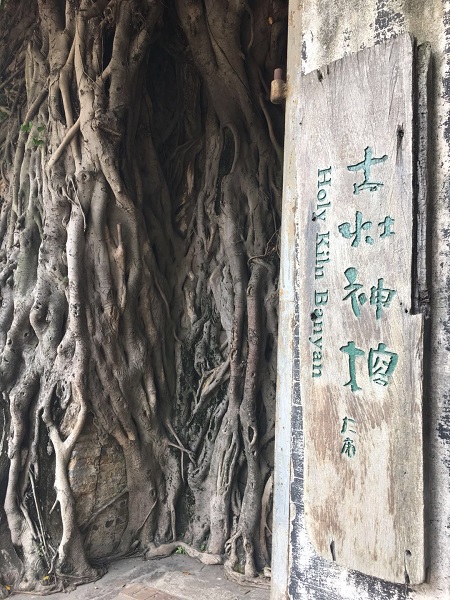 古灶神榕
Holy Kiln Banyan